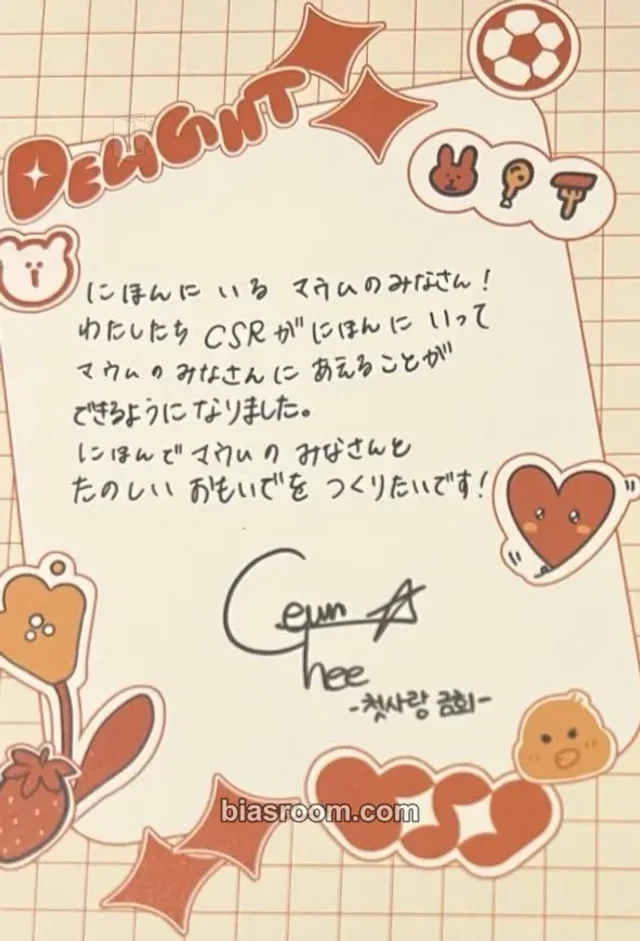 DELIGHT
にほんに いる マウムのみなさん!
わたしたち CSRが にほんに いって
マウムの みなさんに あえることが
できるように なりました。
にほんで マウムの みなさんと
たのしい おもいでを つくりたいです!
Geun
hee
-첫사랑 금희-
biasroom.com